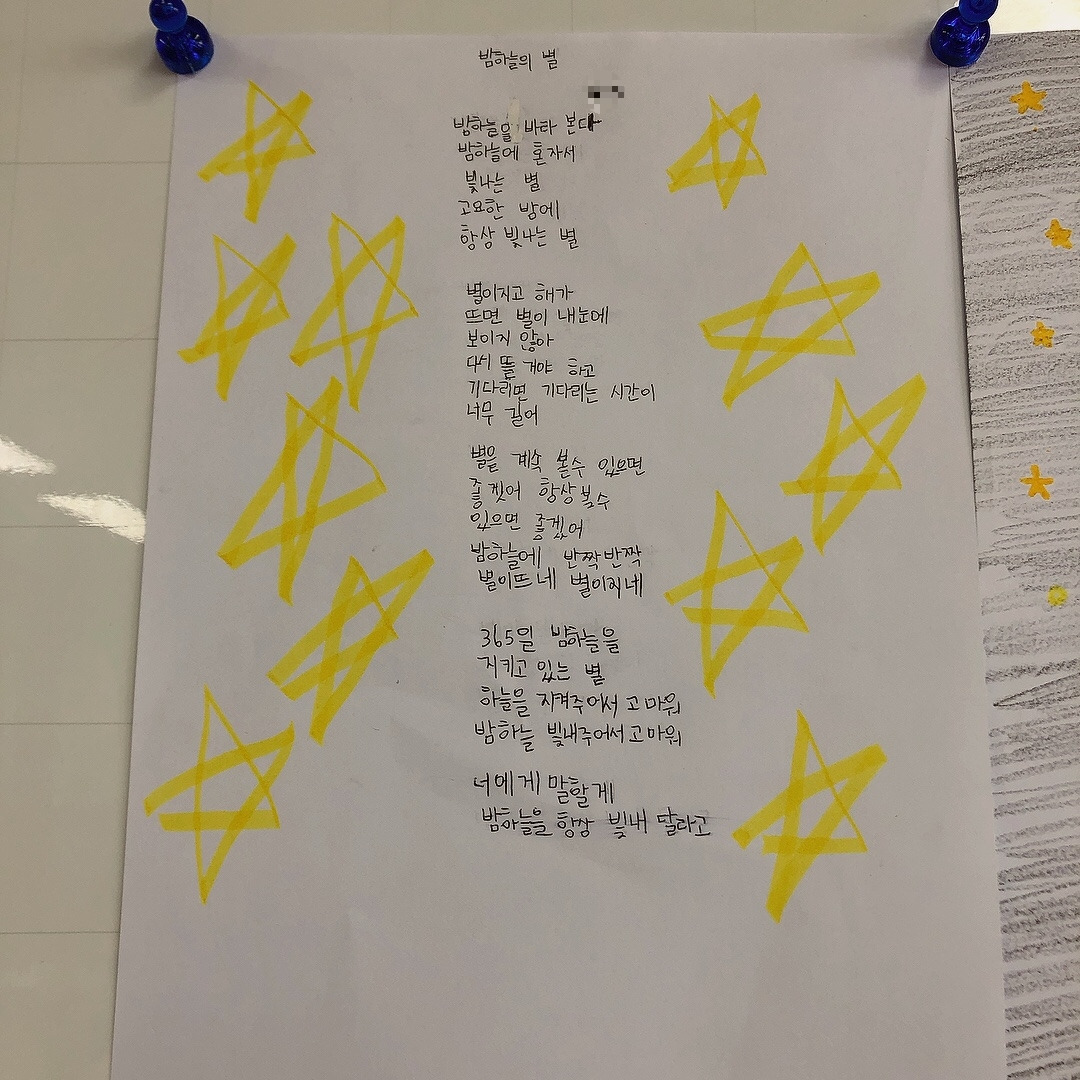 밤하늘의 별
밤하늘을 바라 본다
밤하늘에 혼자서
빛나는 별
고요한 밤에
항상 빛나는 별
별이지고 해가
뜨면 별이 내눈에
보이지 않아
다시 뜰 거야 하고
기다리면 기다리는 시간이
너무 길어
별을 계속 볼수 있으면
좋겟어 항상볼수
있으면 좋겠어
밤하늘에 반짝반짝
별이뜨네 별이지네
365일 밤하늘을
지키고 있는 별
하늘을 지켜주어서 고마워
밤하늘 빛내주어서고마워
너에게 말할게
밤하늘을 항상 빛내 달라고